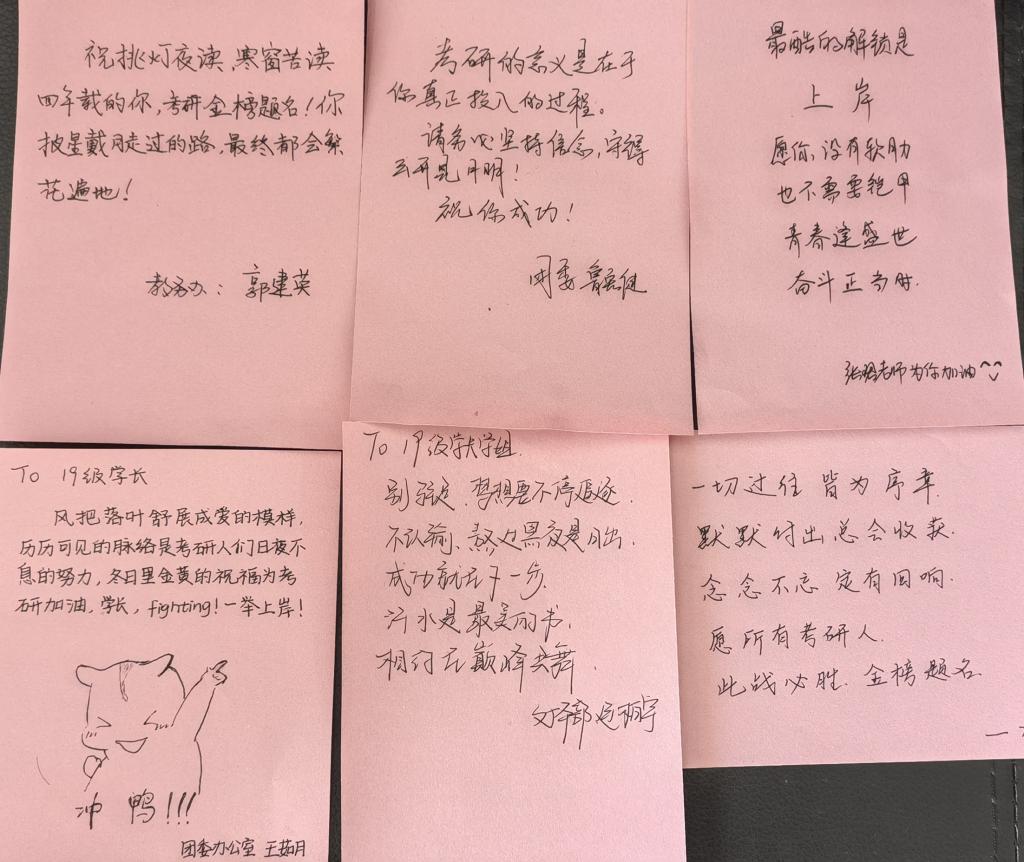 祝挑灯夜读、寒窗苦读
四年载的你,考研金榜题名!你
披星戴月走过的路,最终都会繁
花遍地!
教务办:郭建英
考研的意义是在于
你真正投入的过程。
请务必坚持信念,守得
云开见月明!
祝你成功!
团委
最酷的解锁是
上岸
愿你没有软肋
也不需要铠甲
青春逢盛世
奋斗正当时.
老师为你加油
To 19级学长
风把落叶舒展成爱的模样,
历历可见的脉络是考研人们日夜不
息的努力,冬日里金黄的祝福为考
研加油,学长,fighting!一举上岸!
冲鸭!!!
团委办公室 王茹月
To 19级学长学姐.
别放弃.梦想要不停追逐.
不认输、熬过黑夜是日出.
成功就在下一步.
汗水是最美的书.
相约在巅峰共舞.
一切过往 皆为序章.
默默付出总会收获.
念念不忘 定有回响.
愿所有考研人.
此战必胜.金榜题名.